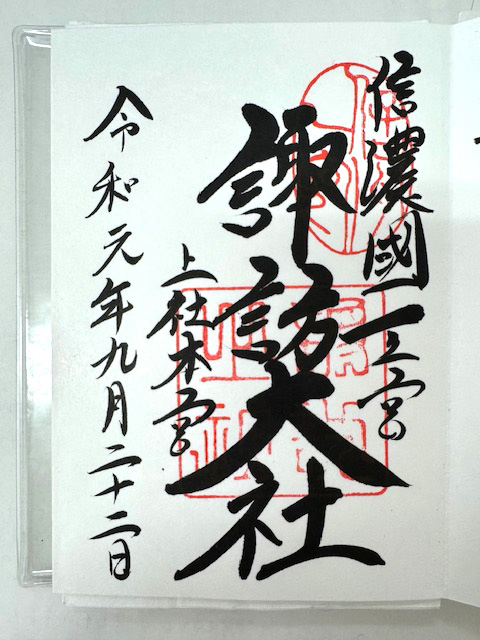 信濃國一之宮
諏訪大社
上社本宮
令和元年九月二十二日